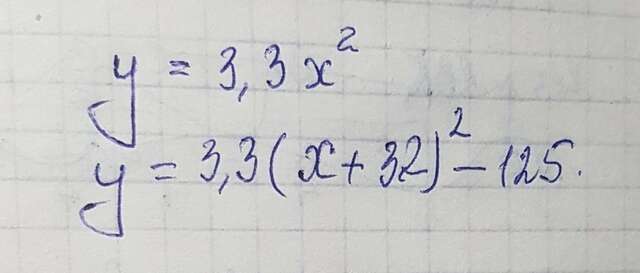 y = 3,3x²
y = 3,3(x+32)² - 125.